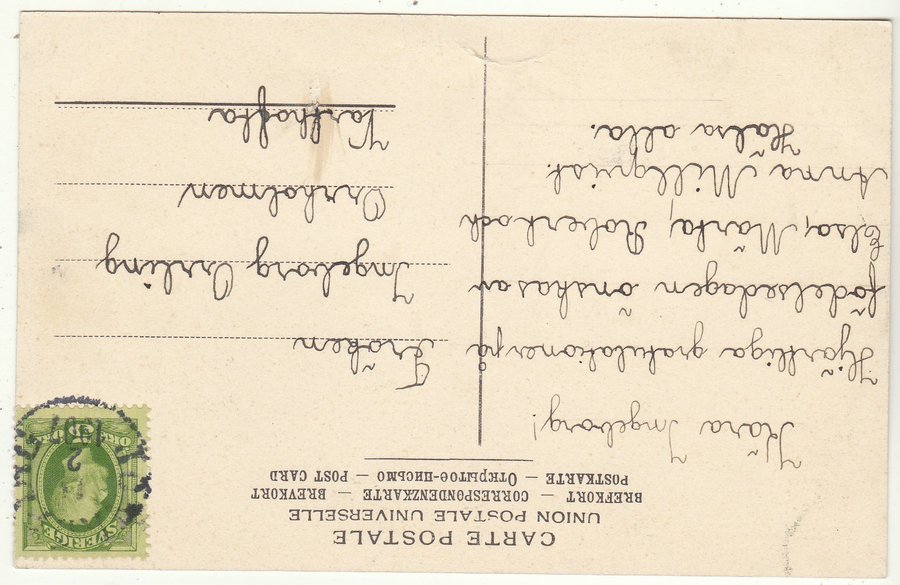 CARTE POSTALE
UNION POSTALE UNIVERSELLE
BREFKORT — CORRESPONDENZKARTE — BREVKORT
POSTKARTE — Открытое-письмо — POST CARD
Kära Ingeborg!
Hjärtliga gratulationer på
födelsedagen önskas av
Elsa, Märta, Robert och
Anna Millqvist.
Hälsa alla.
Fröken
Ingeborg Orrling
Orrholmen
Karthofta
SVERIGE
5